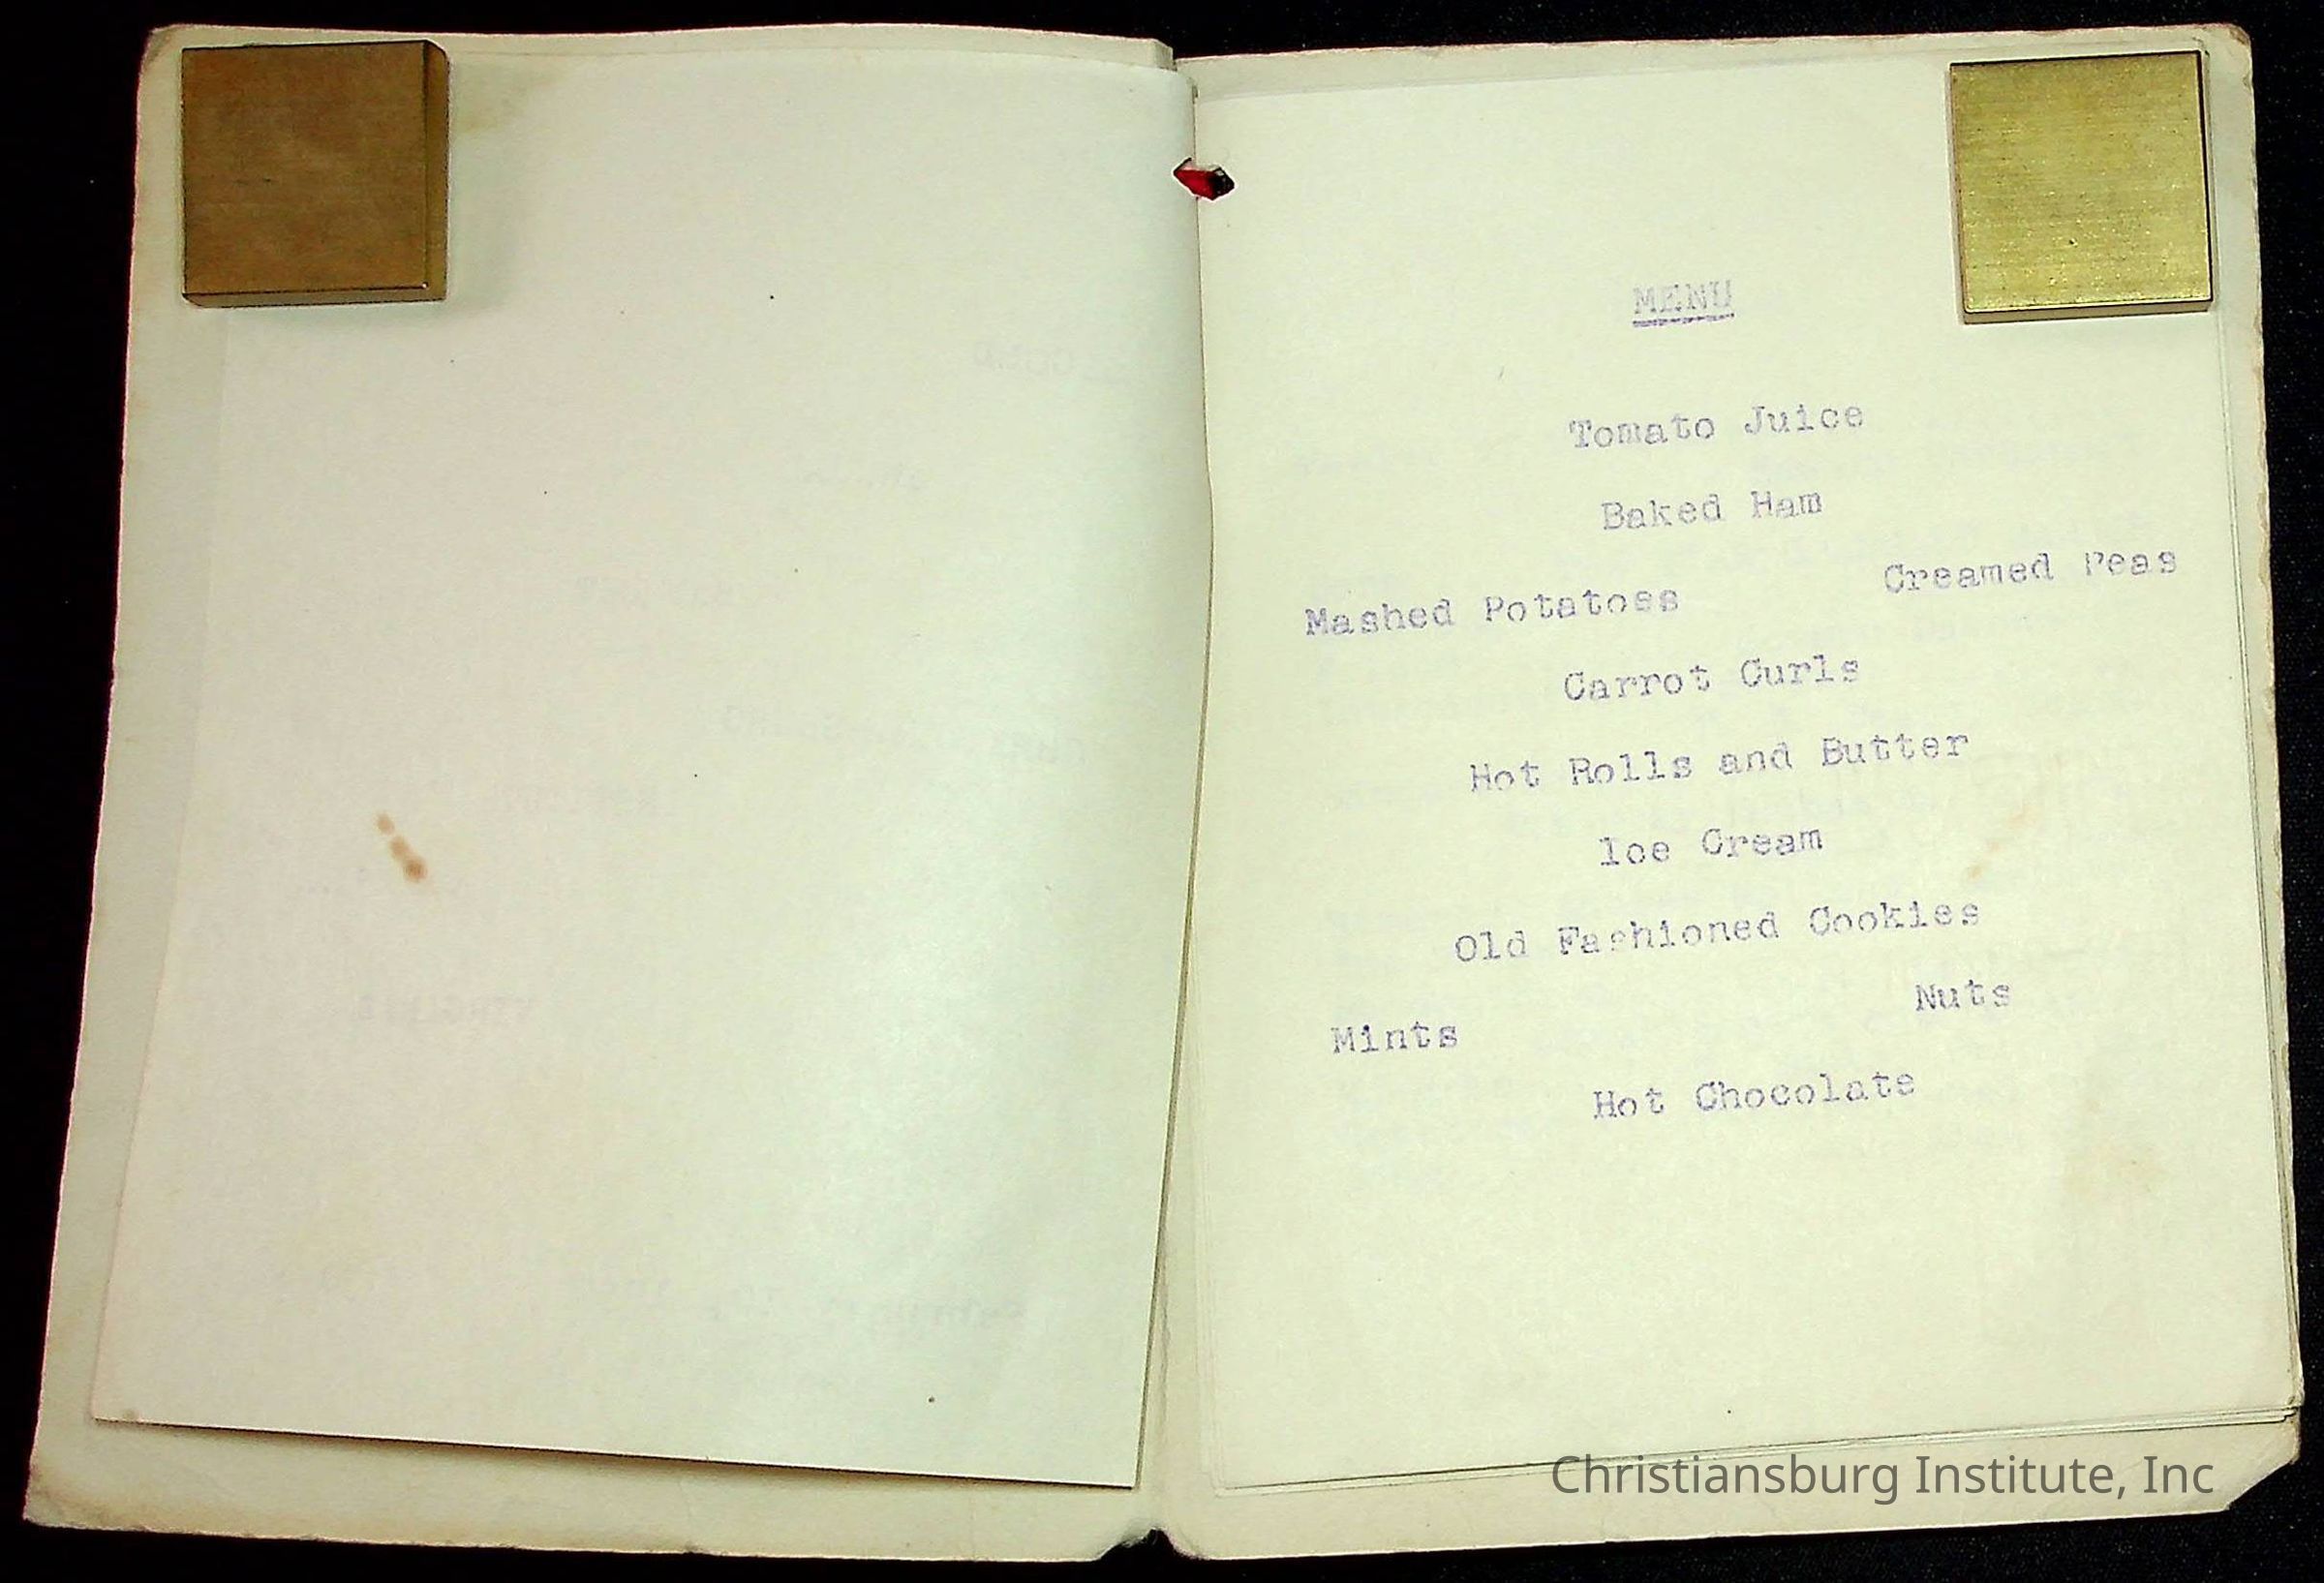 MENU
Tomato Juice
Baked Ham
Mashed Potatoes Creamed Peas
Carrot Curls
Hot Rolls and Butter
Ice Cream
Old Fashioned Cookies
Mints Nuts
Hot Chocolate
Christiansburg Institute, Inc